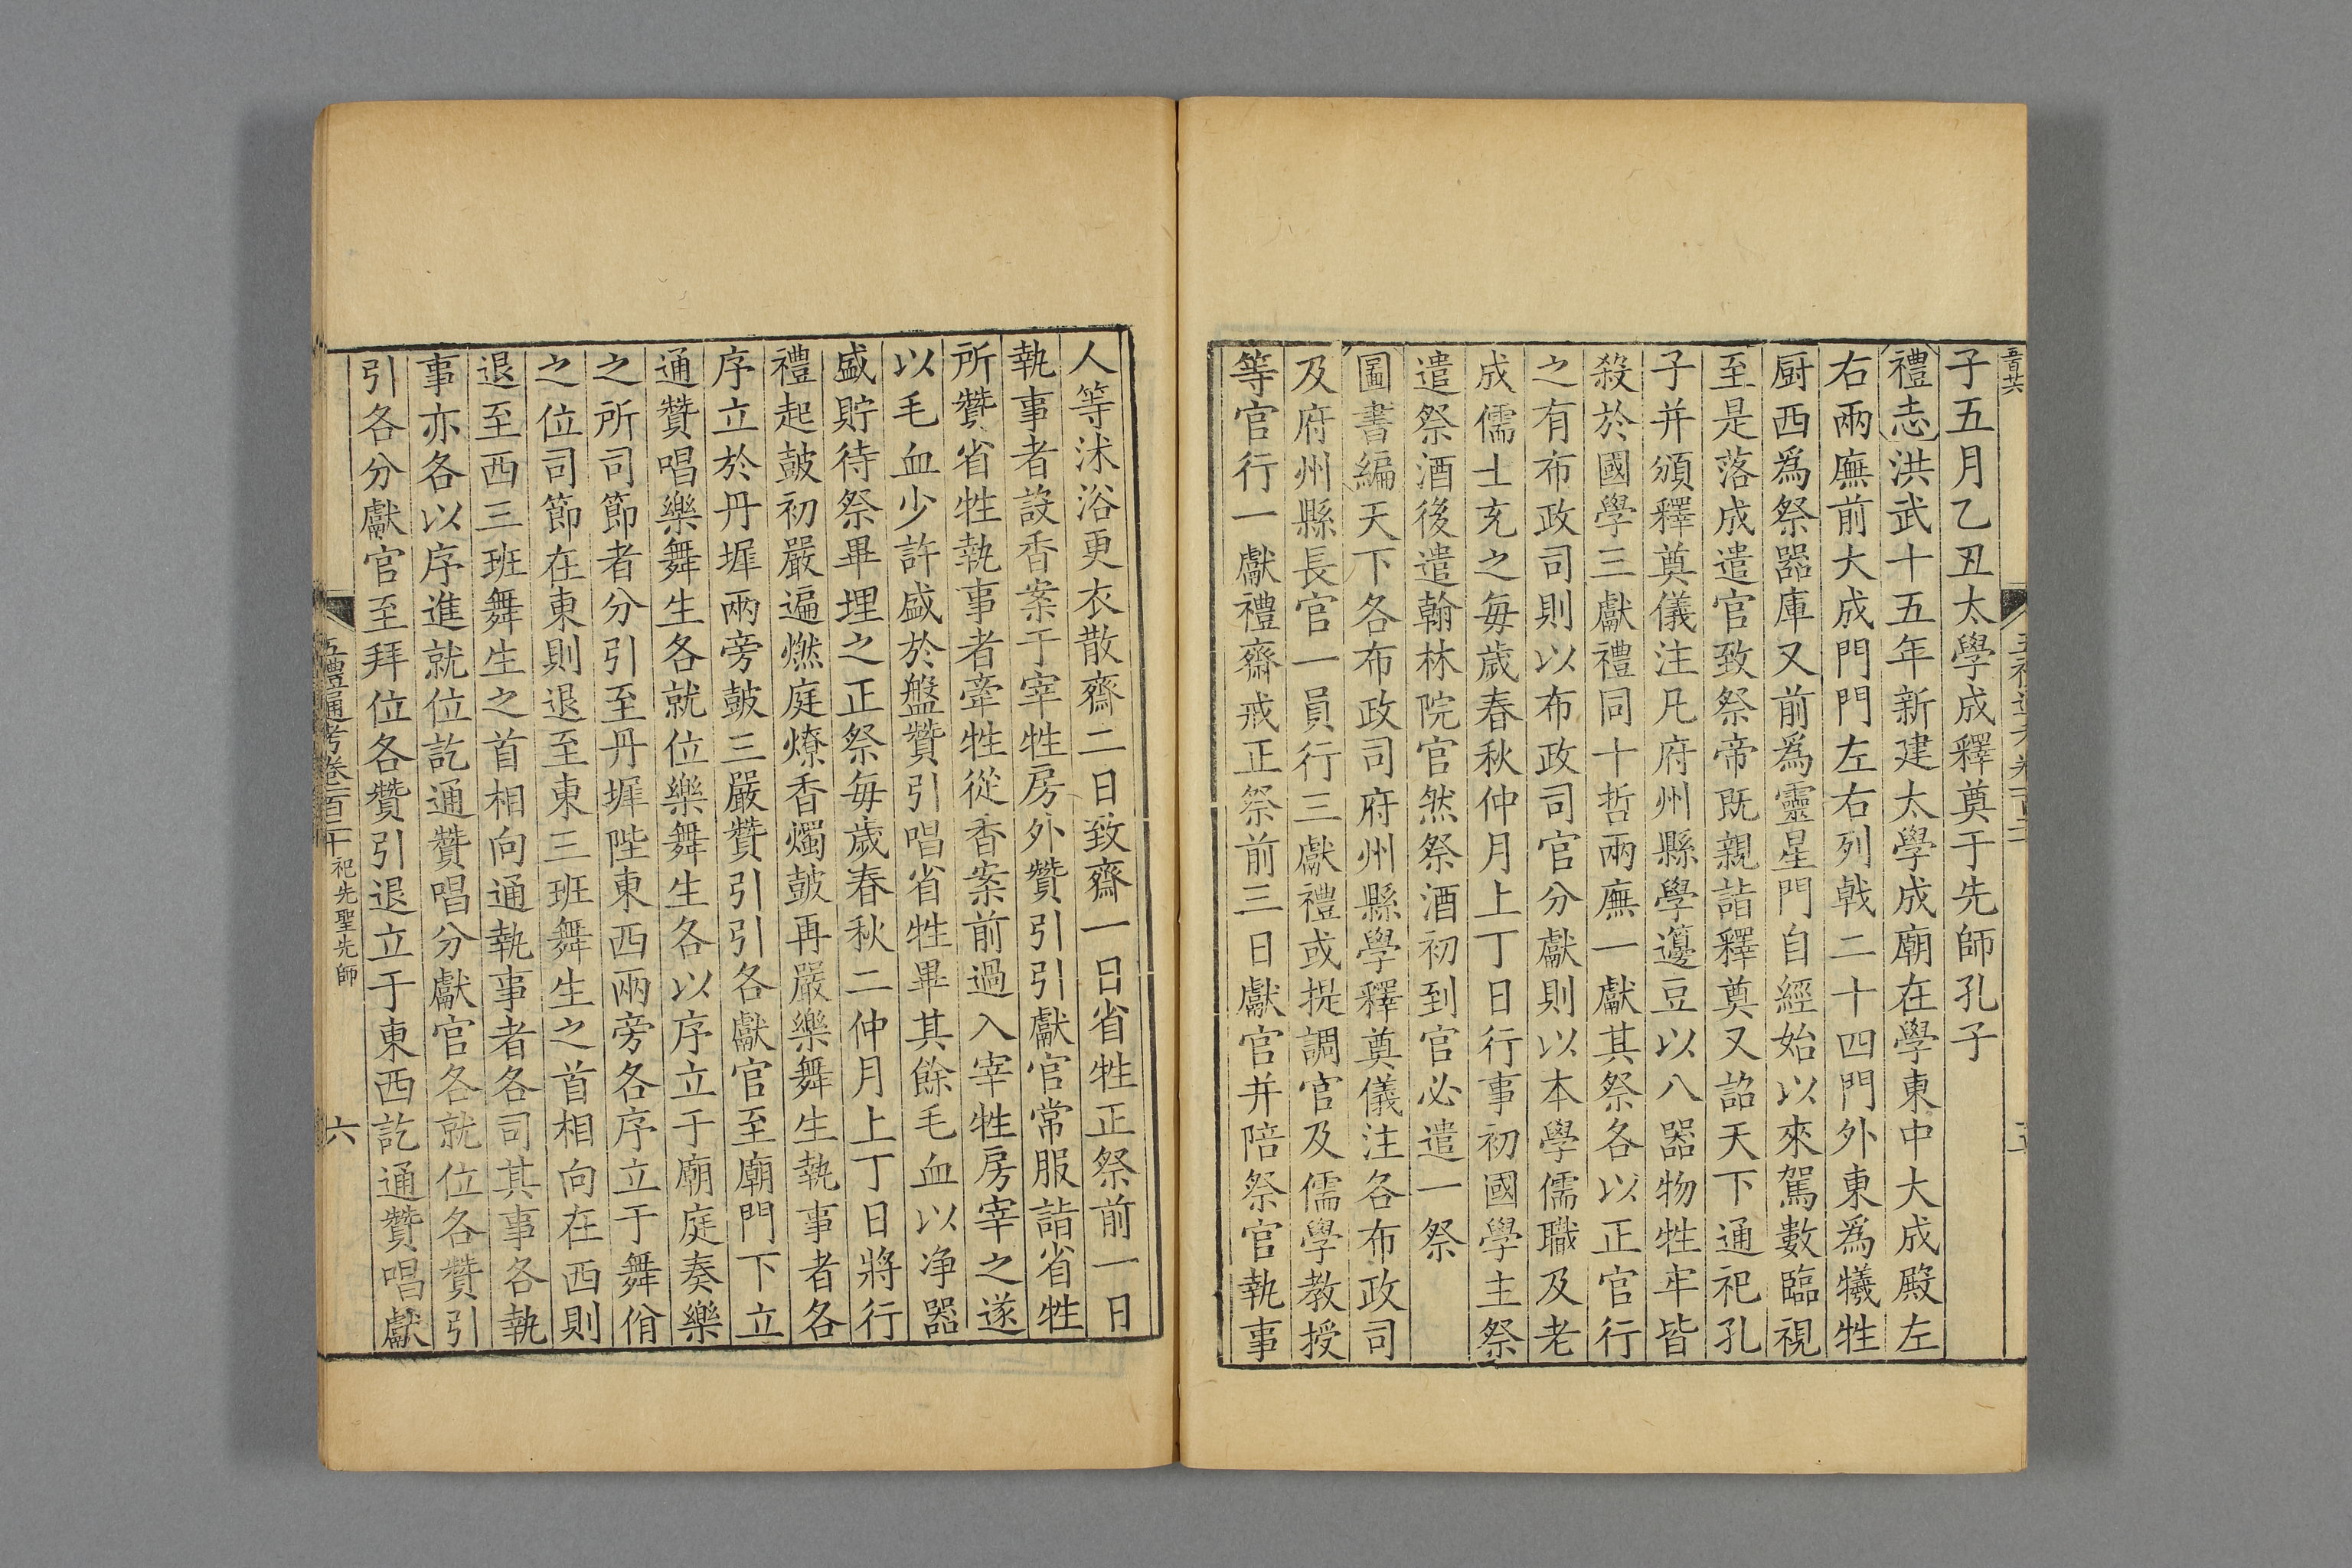 子五月乙丑太學成釋奠于先師孔子
禮志洪武十五年新建太學成廟在學東中大成殿左
右兩廡前大成門門左右列戟二十四門外東為犧牲
厨西為祭器庫又前為靈星門自經始以來駕數臨視
至是落成遣官致祭帝既親詣釋奠又詔天下通祀孔
子并頒釋奠儀注凡府州縣學籩豆以八器物牲牢皆
殺於國學三獻禮同十哲兩廡一獻其祭各以正官行
之有布政司則以布政司官分獻則以本學儒職及老
成儒士充之每歲春秋仲月上丁日行事初國學主祭
遣祭酒後遣翰林院官然祭酒初到官必遣一祭
圖書編天下各布政司府州縣學釋奠儀注各布政司
及府州縣長官一員行三獻禮或提調官及儒學教授
等官行一獻禮齋戒正祭前三日獻官并陪祭官執事
人等沐浴更衣散齋二日致齋一日省牲正祭前一日
執事者設香案于宰牲房外贊引引獻官常服詣省牲
所贊省牲執事者牽牲從香案前過入宰牲房宰之遂
以毛血少許盛於盤贊引唱省牲畢其餘毛血以净器
盛貯待祭畢埋之正祭每歲春秋二仲月上丁日將行
禮起鼓初嚴遍燃庭燎香燭鼓再嚴樂舞生執事者各
序立於丹墀兩旁鼓三嚴贊引引各獻官至廟門下立
通贊唱樂舞生各就位樂舞生各以序立于廟庭奏樂
之所司節者分引至丹墀陛東西兩旁各序立于舞佾
之位司節在東則退至東三班舞生之首相向在西則
退至西三班舞生之首相向通執事者各司其事各執
事亦各以序進就位訖通贊唱分獻官各就位各贊引
引各分獻官至拜位各贊引退立于東西訖通贊唱獻
五禮通考卷一百二十 祀先聖先師
六